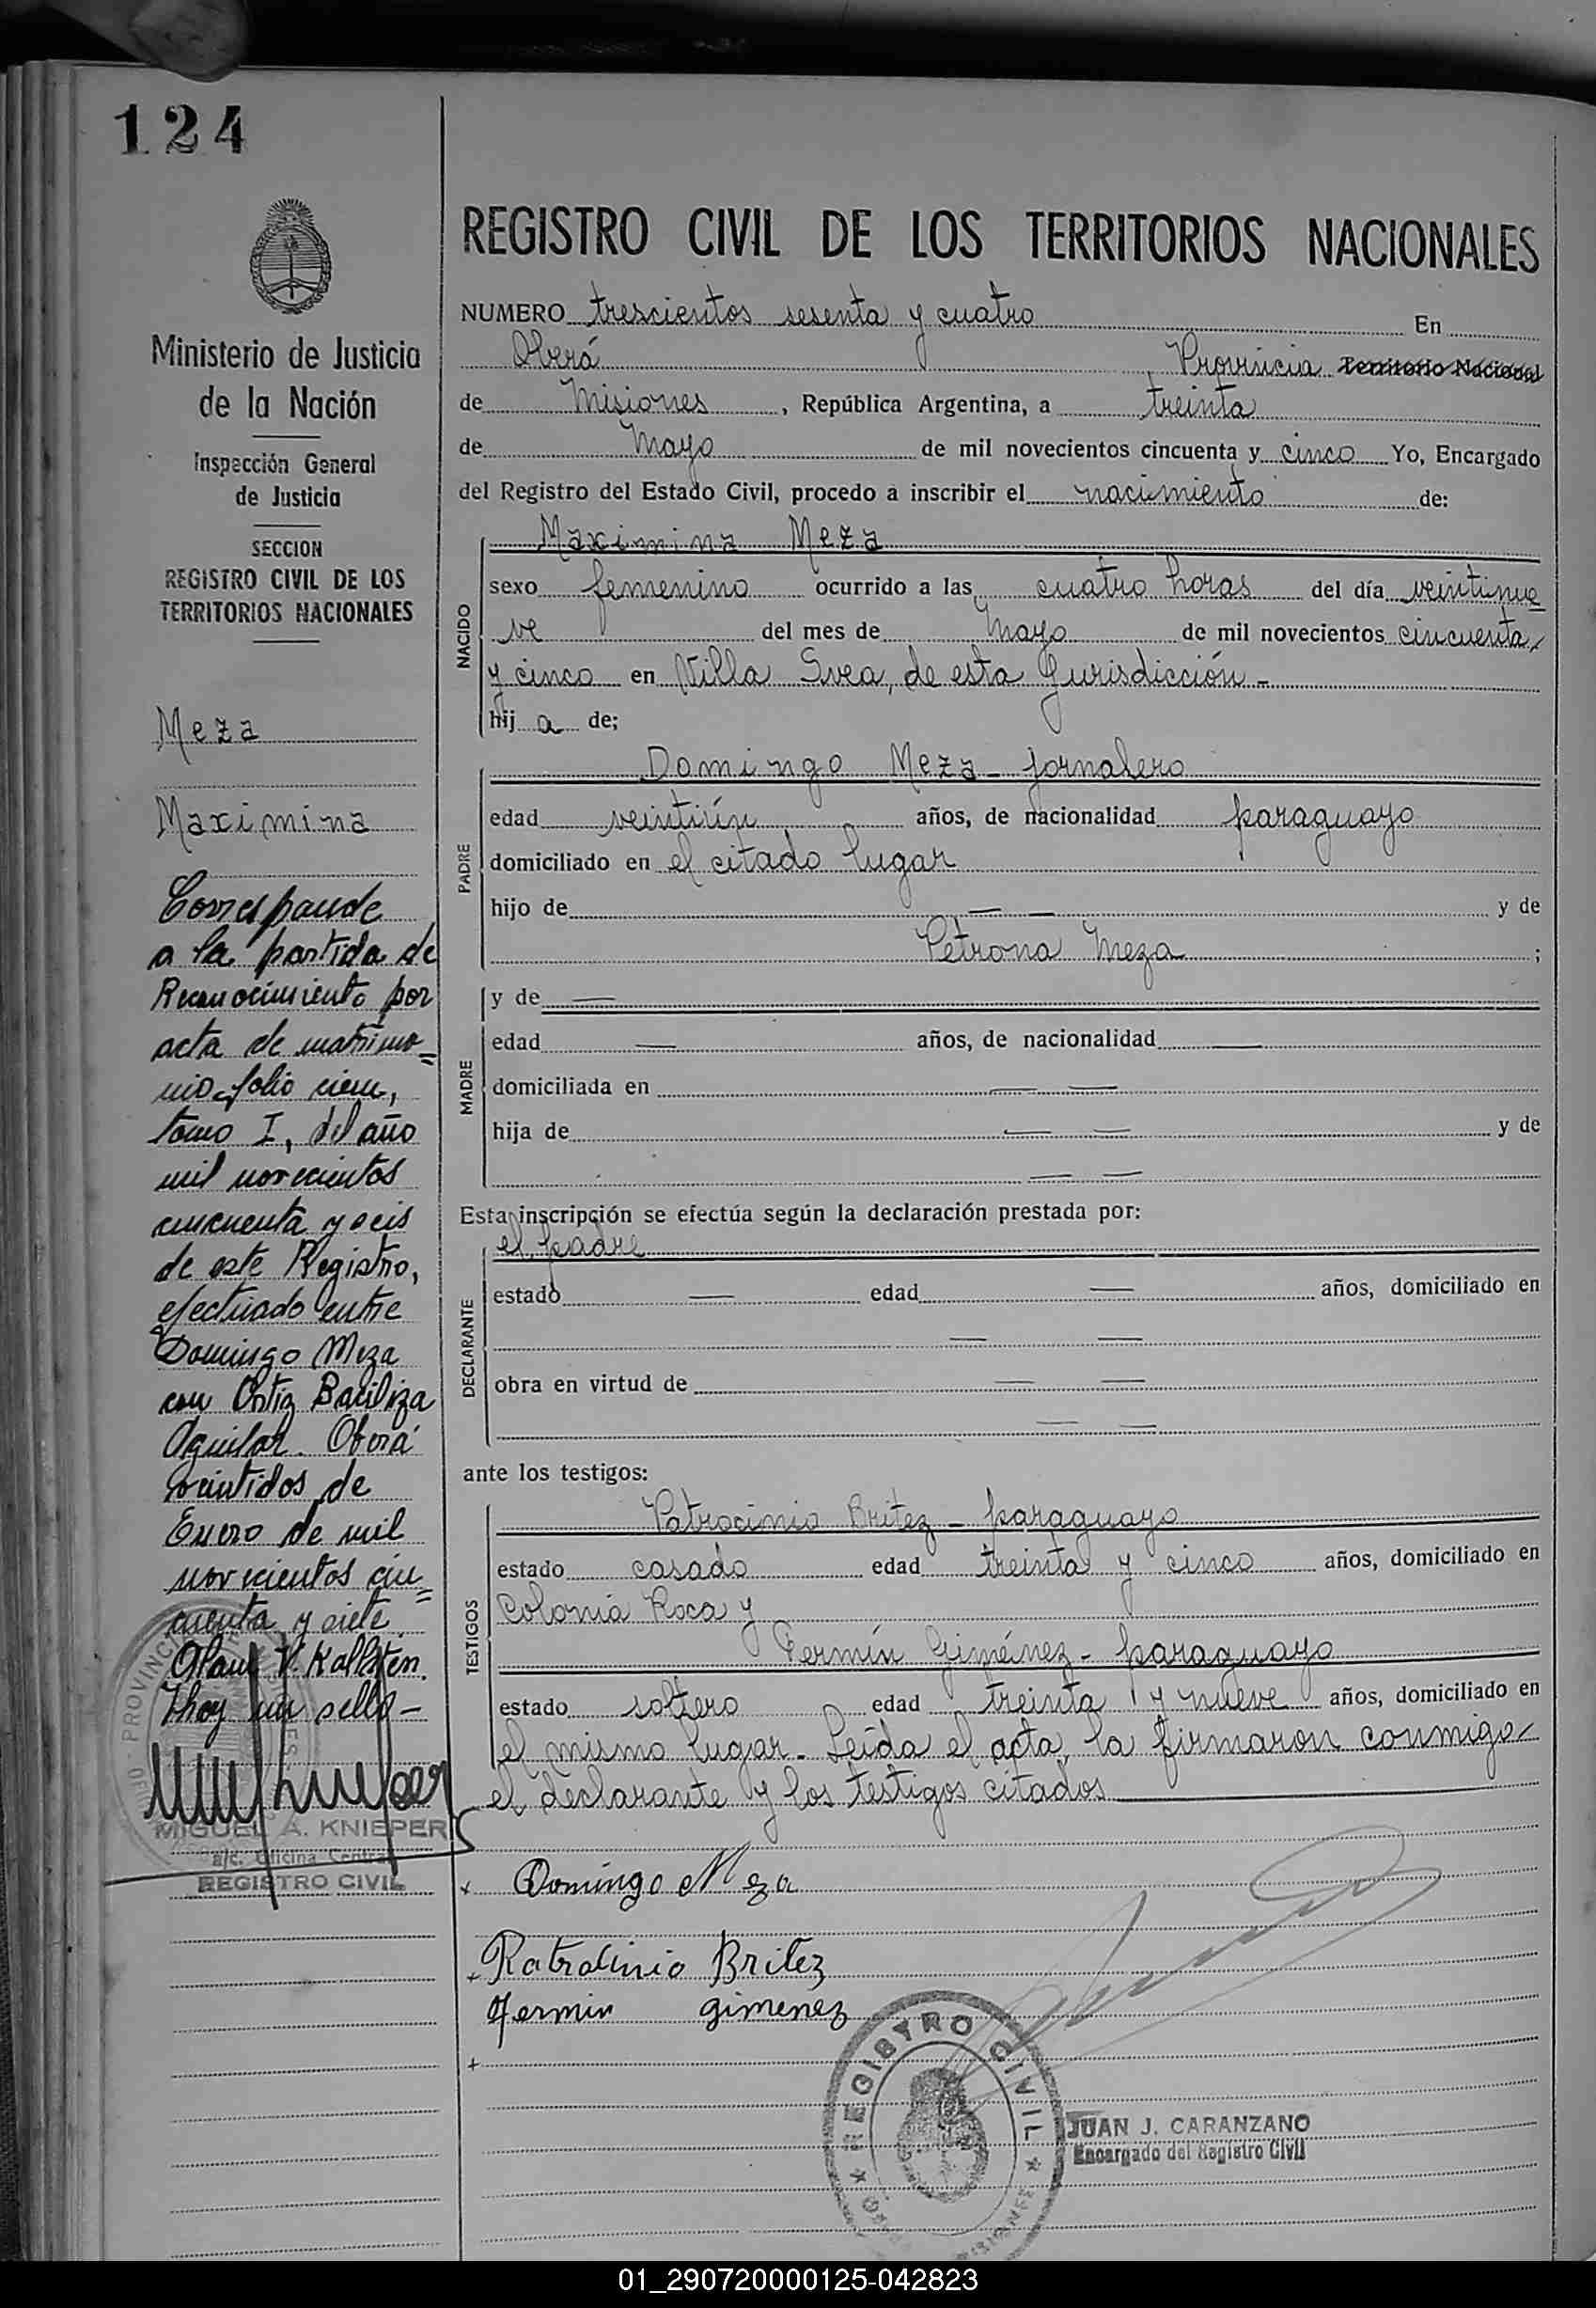 124
Ministerio de Justicia
de la Nación
Inspección General
de Justicia
SECCION
REGISTRO CIVIL DE LOS
TERRITORIOS NACIONALES
Meza
Maximina
Corresponde
a la partida de
Reconocimiento por
acta de matrimo=
nio folio cien,
tomo I, del año
mil novecientos
cincuenta y seis
de este Registro,
efectuado entre
Domingo Meza
con Ortiz Baciliza
Aguilar. Oberá
veintidos de
Enero de mil
novecientos cin=
cuenta y siete.
Olaus V. Kallsten.
Ihay un sello-
MIGUEL A. KNIEPER
a/c. Oficina Central
REGISTRO CIVIL
REGISTRO CIVIL DE LOS TERRITORIOS NACIONALES
NUMERO trescientos sesenta y cuatro En
Oberá Provincia Territorio Nacional
de Misiones, República Argentina, a treinta
de Mayo de mil novecientos cincuenta y cinco Yo, Encargado
del Registro del Estado Civil, procedo a inscribir el nacimiento de:
NACIDO
Maximina Meza
sexo femenino ocurrido a las cuatro horas del día veintinue
ve del mes de Mayo de mil novecientos cincuenta
y cinco en Villa Svea, de esta Jurisdicción-
hij a de;
PADRE
Domingo Meza - jornalero
edad veintiún años, de nacionalidad paraguayo
domiciliado en el citado lugar
hijo de — — y de
Petrona Meza ;
MADRE
y de —
edad — años, de nacionalidad —
domiciliada en — —
hija de — — y de
— —
Esta inscripción se efectúa según la declaración prestada por:
DECLARANTE
el padre
estado — edad — años, domiciliado en
— —
obra en virtud de — —
— —
ante los testigos:
TESTIGOS
Patrocinio Britez - paraguayo
estado casado edad treinta y cinco años, domiciliado en
Colonia Roca y
Fermín Giménez - paraguayo
estado soltero edad treinta y nueve años, domiciliado en
el mismo lugar. Leída el acta, la firmaron conmigo
el declarante y los testigos citados
Domingo Meza
Patrocinio Britez
Fermin gimenez
REGISTRO CIVIL
JUAN J. CARANZANO
Encargado del Registro Civil
01_290720000125-042823